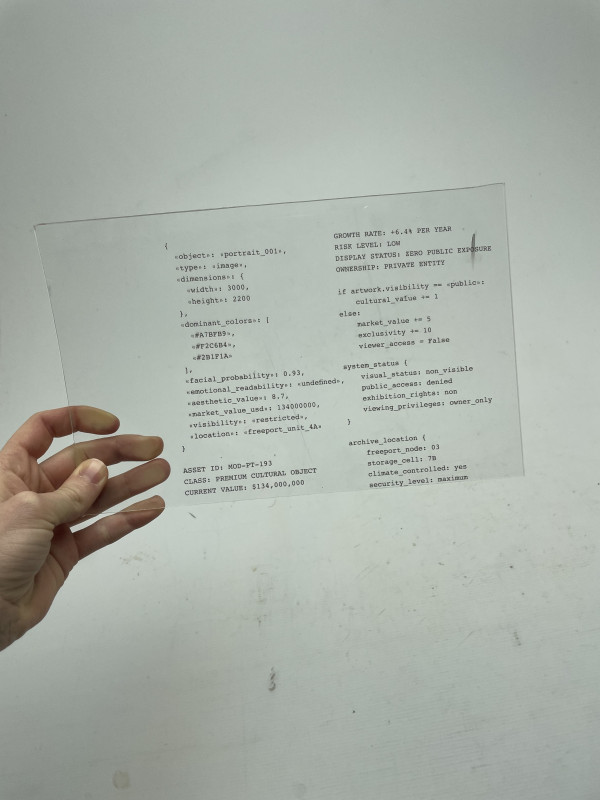 {
«object»: «portrait_001»,
«type»: «image»,
«dimensions»: {
«width»: 3000,
«height»: 2200
},
«dominant_colors»: [
«#A7BFB9»,
«#F2C6B4»,
«#2B1F1A»
],
«facial_probability»: 0.93,
«emotional_readability»: «undefined»,
«aesthetic_value»: 8.7,
«market_value_usd»: 134000000,
«visibility»: «restricted»,
«location»: «freeport_unit_4A»
}
ASSET ID: MOD-PT-193
CLASS: PREMIUM CULTURAL OBJECT
CURRENT VALUE: $134,000,000
GROWTH RATE: +6.4% PER YEAR
RISK LEVEL: LOW
DISPLAY STATUS: ZERO PUBLIC EXPOSURE
OWNERSHIP: PRIVATE ENTITY
if artwork.visibility == «public»:
cultural_value += 1
else:
market_value += 5
exclusivity += 10
viewer_access = False
system_status {
visual_status: non_visible
public_access: denied
exhibition_rights: non
viewing_privileges: owner_only
}
archive_location {
freeport_node: 03
storage_cell: 7B
climate_controlled: yes
security_level: maximum